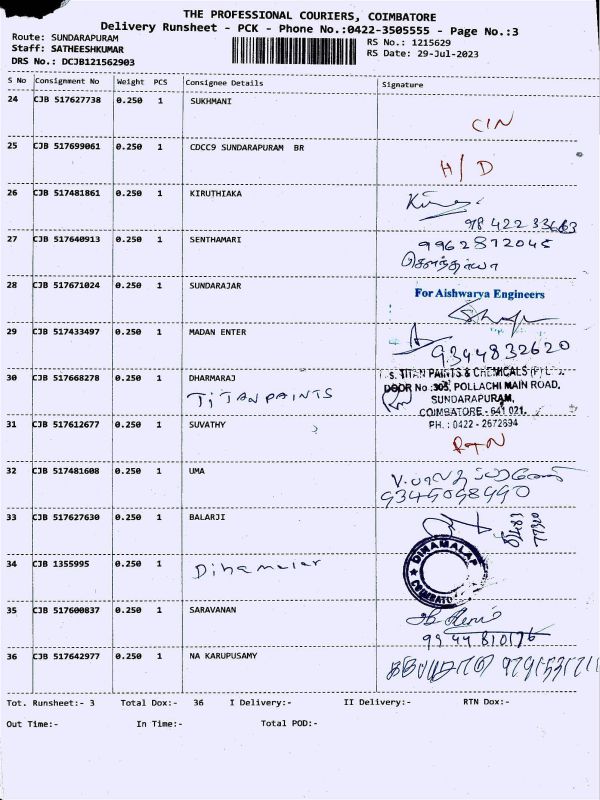 THE PROFESSIONAL COURIERS, COIMBATORE
Delivery Runsheet - PCK - Phone No.:0422-3505555 - Page No.:3
Route: SUNDARAPURAM
Staff: SATHEESHKUMAR
DRS No.: DCJB121562903
RS No.: 1215629
RS Date: 29-Jul-2023
S No Consignment No Weight PCS Consignee Details Signature
24 CJB 517627738 0.250 1 SUKHMANI
CIN
25 CJB 517699061 0.250 1 CDCC9 SUNDARAPURAM BR
H/D
26 CJB 517481861 0.250 1 KIRUTHIAKA
27 CJB 517640913 0.250 1 SENTHAMARI
9962872045
சௌந்தர்யா
28 CJB 517671024 0.250 1 SUNDARAJAR
For Aishwarya Engineers
29 CJB 517433497 0.250 1 MADAN ENTER
9344832620
30 CJB 517668278 0.250 1 DHARMARAJ
TiTAN PAINTS
TITAN PAINTS & CHEMICALS (P) L
DOOR No :303, POLLACHI MAIN ROAD,
SUNDARAPURAM,
COIMBATORE - 641 021.
PH. : 0422 - 2672694
31 CJB 517612677 0.250 1 SUVATHY
RTN
32 CJB 517481608 0.250 1 UMA
33 CJB 517627630 0.250 1 BALARJI
34 CJB 1355995 0.250 1 Dinamalar
DINAMALAR
COIMBATO
35 CJB 517600837 0.250 1 SARAVANAN
9944810176
36 CJB 517642977 0.250 1 NA KARUPUSAMY
Tot. Runsheet:- 3 Total Dox:- 36 I Delivery:- II Delivery:- RTN Dox:-
Out Time:- In Time:- Total POD:-